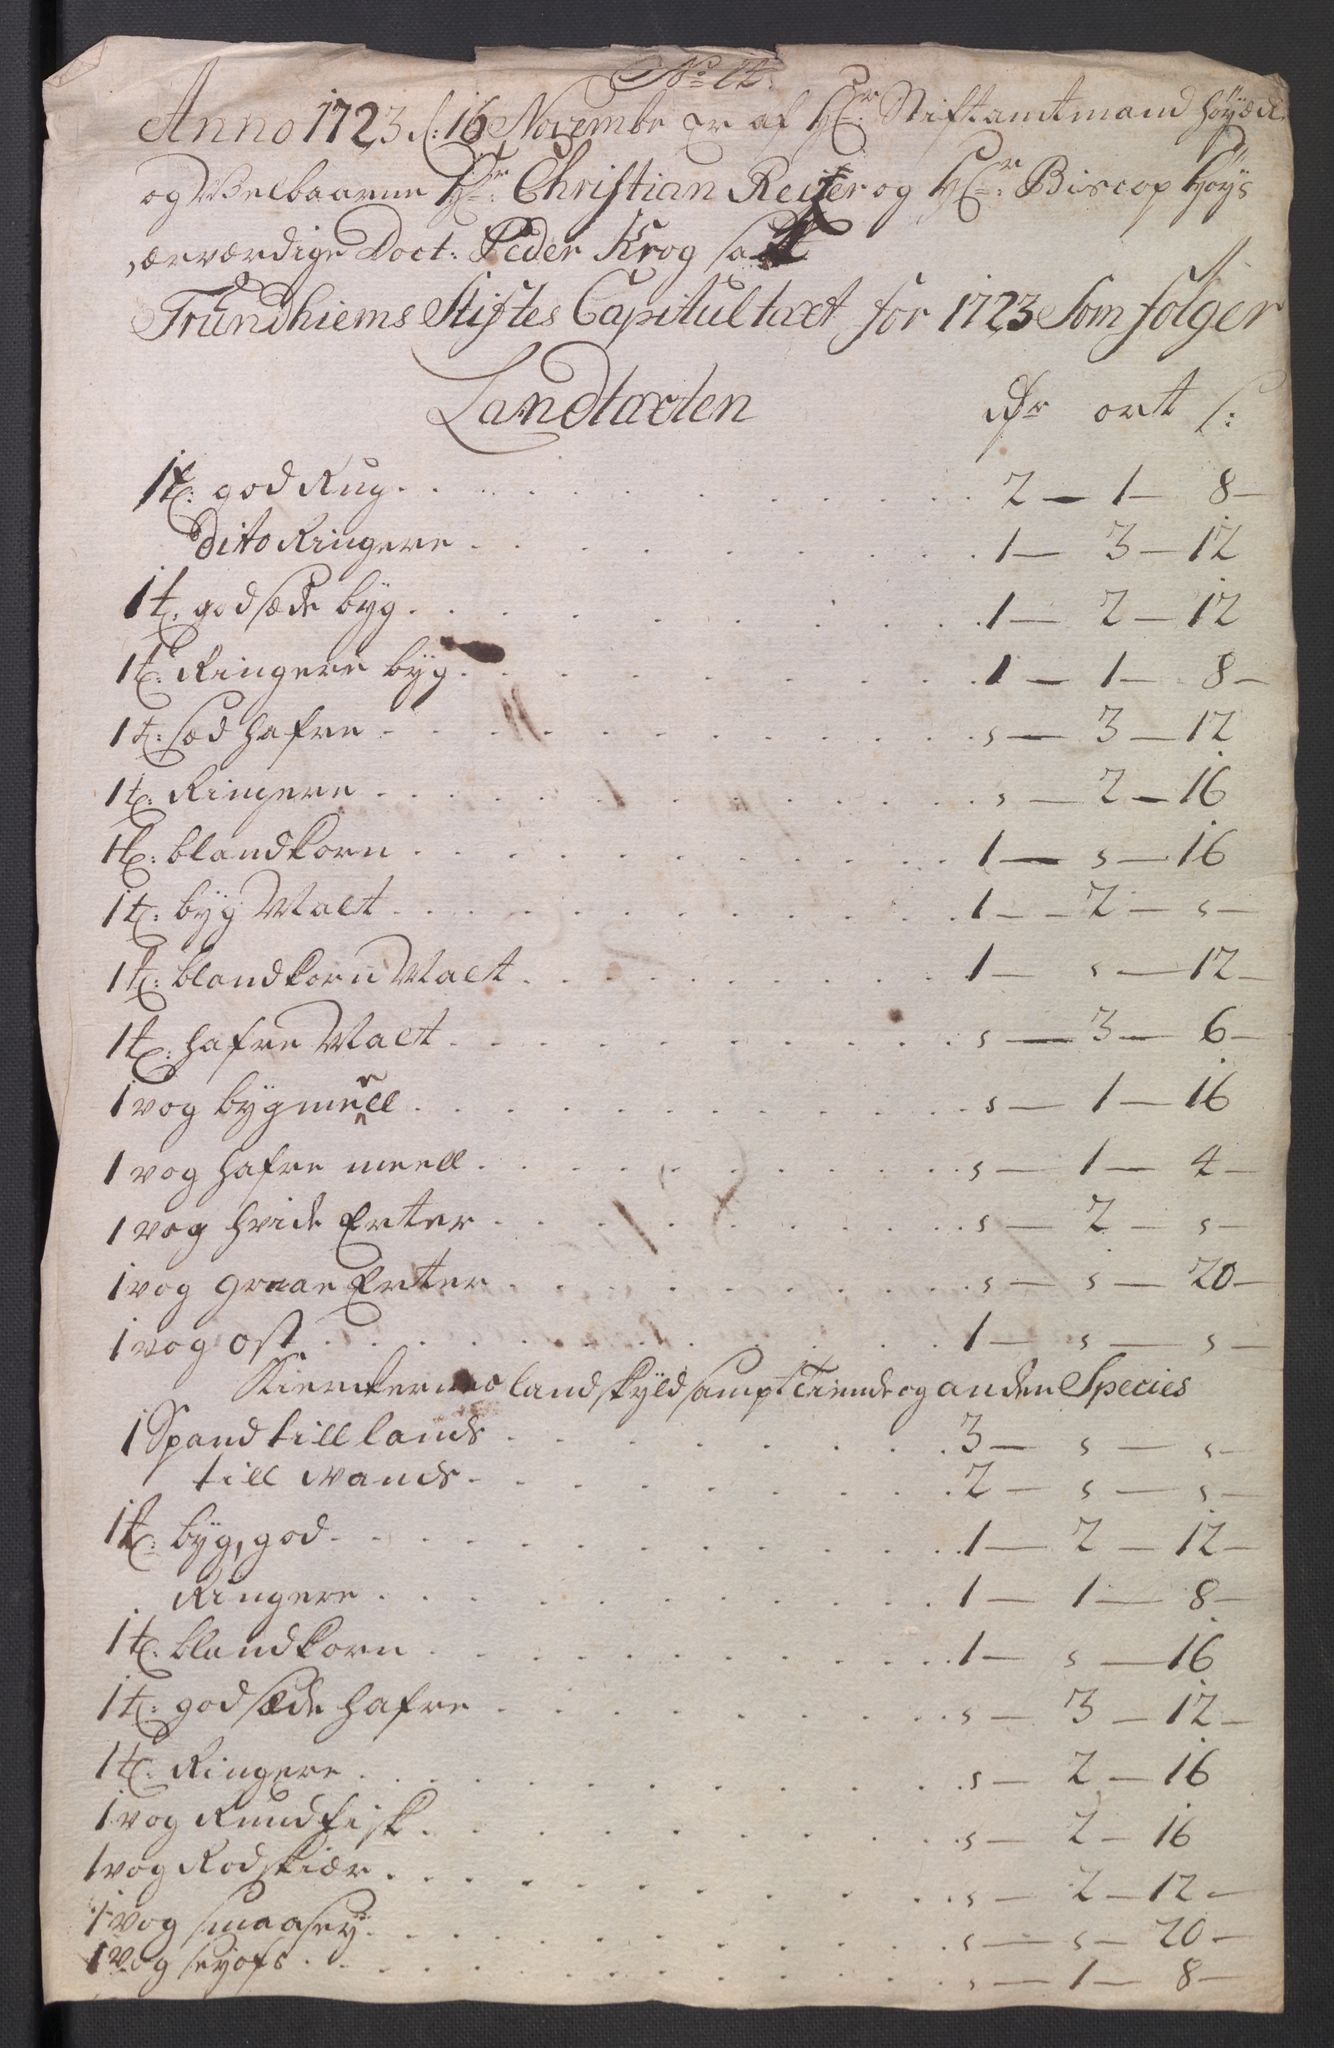 No: 12.
Anno 1723 d: 16 Novembr er af Hr: Stiftamtmand höyædl
og Welbaarne Hr: Christian Reitzer og Hr: Biscop Höys
ærværdige Doct: Peder Krog satt
Trundhiems Stiftes Capitultaxt for 1723 Som fölger
Landtaxten Rdr ort s:
1 t: god Rug 2 - 1 - 8 -
Dito Ringere 1 - 3 - 12
1 t: god sæde byg 1 - 2 - 12
1 t: Ringere byg 1 - 1 - 8 -
1 t: sæd hafre s - 3 - 12
1 t: Ringere s - 2 - 16
1 t: blandkorn 1 - s - 16
1 t: byg Malt 1 - 2 - s -
1 t: blandkorn Malt 1 - s - 12 -
1 t: hafre Malt s - 3 - 6 -
1 vog bygmeell s - 1 - 16
1 vog hafre meell s - 1 - 4 -
1 vog hvide Erter s - 2 - s -
1 vog graae Erter s - s - 20 -
1 vog ost 1 - s - s -
Kierckernes landskyld sampt Tiende og anden Species
1 Spand till lands 3 - s - s -
till Vands 2 - s - s -
1 t: byg, god 1 - 2 - 12 -
Ringere 1 - 1 - 8 -
1 t: blandkorn 1 - s - 16
1 t: god sæde hafre s - 3 - 12 -
1 t: Ringere s - 2 - 16
1 vog Rundfisk s - 2 - 16
1 vog Rodskiær s - 2 - 12 -
1 vog smaasey s - s - 20 -
1 vog seyofs s - 1 - 8 -